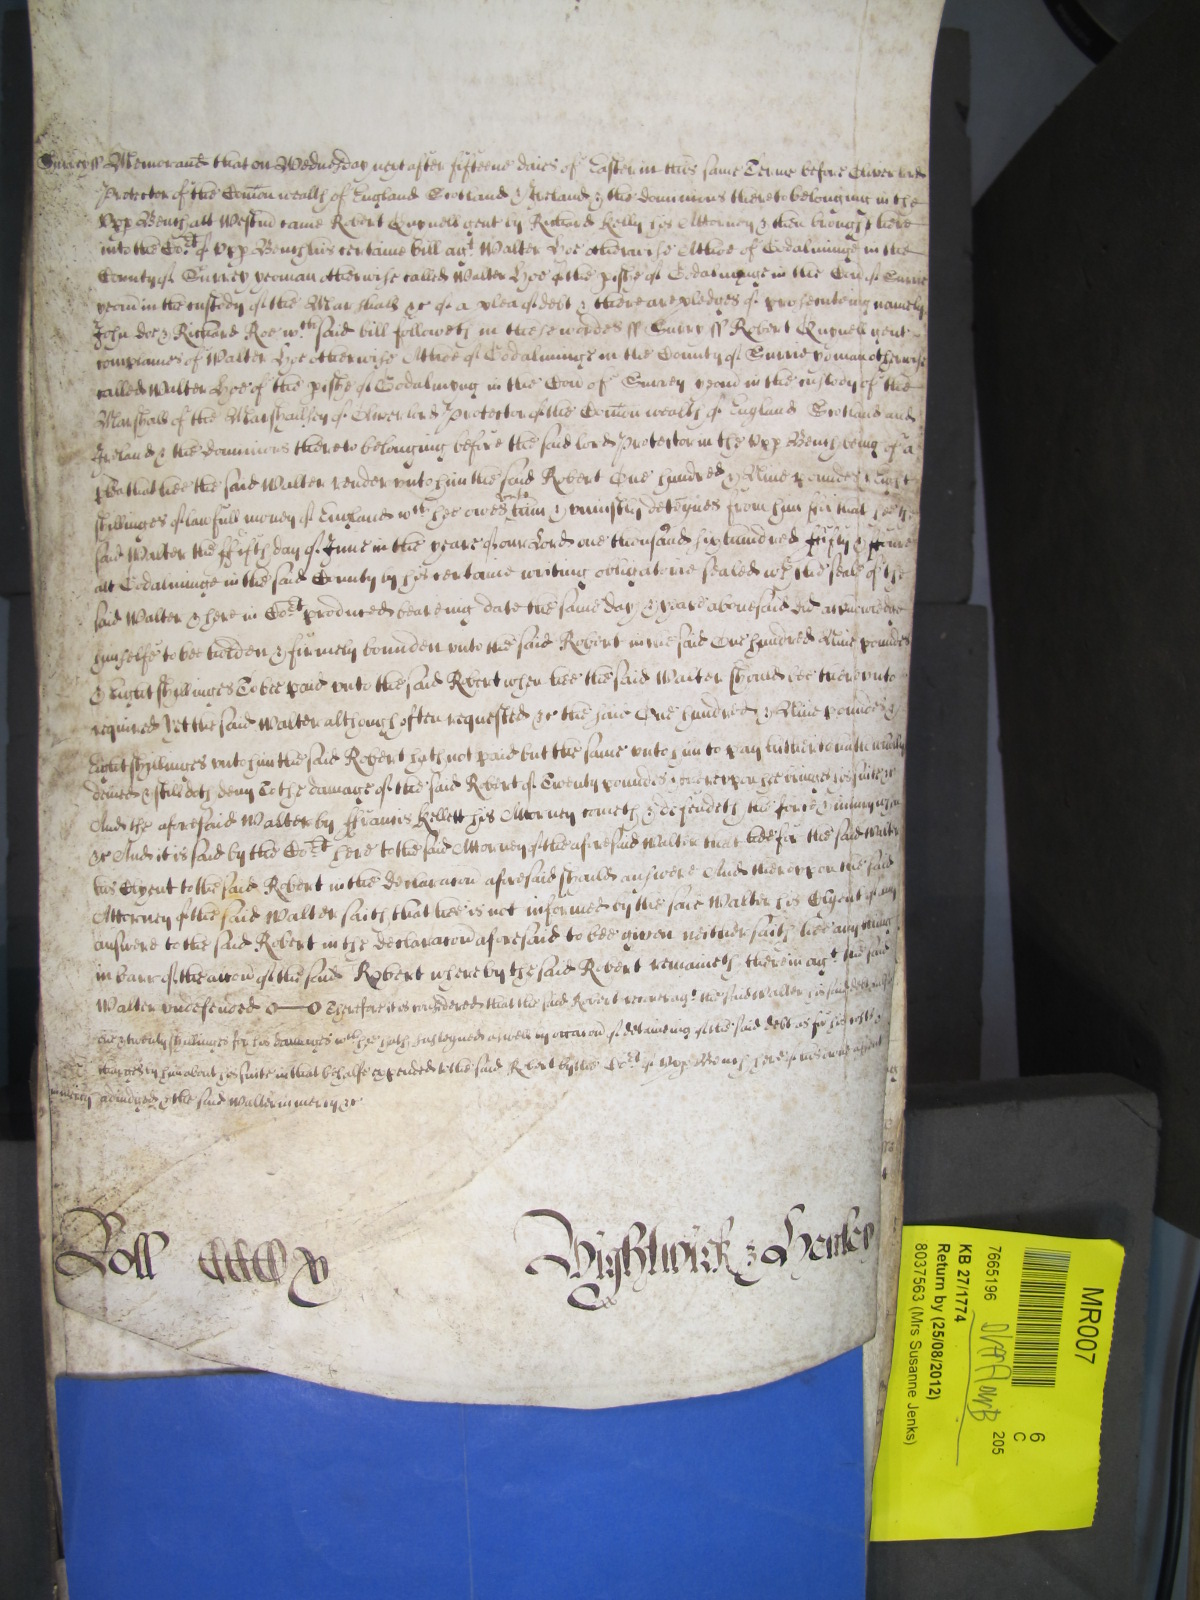 Surrey ss Memorand that on Wednesday next after fifteene daies of Easter in this same Terme before Oliver lord
Protector of the Comon wealth of England Scotland & Ireland & the dominions thereto belonging in the
Upp Bench att Westm came Robert Quynell gent by Richard Kelly his Attorney & then brought here
into the Cort of Upp Bench his certaine bill agt Walter Hoe otherwise Athoe of Godalminge in the
County of Surrey yeoman otherwise called Walter Hoe of the pishe of Godalmynge in the Cou of Surrie
yeom in the custody of the Marshall &c of a plea of debt & there are pledges of prosecuteing namely
John Doe & Richard Roe wch said bill followeth in these wordes ss Surry ss Robert Quynell gent
complaines of Walter Hoe otherwise Athoe of Godalminge in the County of Surrie yoman otherwise
called Walter Hoe of the pishe of Godalmyng in the Cou of Surrey yeom in the custody of the
Marshall of the Marshalsey of Oliver lord Protector of the Comon wealth of England Scotland and
Ireland & the dominions thereto belonging before the said lord Protector in the Upp Bench being of a
plea that hee the said Walter render unto him the said Robert One hundred & Nine poundes & Eight
shillinges of lawfull money of England wch hee owes unto him & uniustly deteynes from him for that hee the
said Walter the ffifth day of June in the yeare of our Lord one thousand six hundred fifty &
att Godalminge in the said County by his certaine writing obligatorie sealed wth the seale of the
said Walter & here in Cort produced beareing date the same day & yeare abovesaid did acknowledge
himselfe to bee holden & firmely bounden unto the said Robert in the said One hundred Nine poundes
& Eight shillinges To bee paid unto the said Robert when hee the said Walter should bee thereunto
required Yet the said Walter although often requested &c the said One hundred & Nine poundes &
Eight shillinges unto him the said Robert hath not paid but the same unto him to pay hitherto hath wholly
denied & still doth deny To the damage of the said Robert of Twenty poundes & thereupon he bringes his suite &c
And the aforesaid Walter by ffrancis Kellett his Attorney cometh & defendeth the force & iniury when
&c And it is said by the Cort here to the said Attorney of the aforesaid Walter that hee for the said Walter
his Clyent to the said Robert in the declaracon aforesaid should answere And thereupon the said
Attorney of the said Walter saith that hee is not informed by the said Walter his Clyent of any
answere to the said Robert in the declaracon aforesaid to bee given neither saith hee any thing
in barr of the accon of the said Robert whereby the said Robert remaineth therein agt the said
Walter undefended Therefore it is considered that the said Robert recover agt the said Walter his said debt
& twenty shillinges for his damages wch hee hath susteyned aswell by occacon of deteineing of the said debt as for his costs &
charges by him about his suite in that behalfe expended to the said Robert by the Cort of Upp Bench here of his owne assent
mercy adiudged & the said Walter in mercy &c
Roll CCCCxv
Wightwick & Henley
MR007
6
C
205
7665196
KB 27/1774
Return by (25/08/2012)
8037563 (Mrs Susanne Jenks)